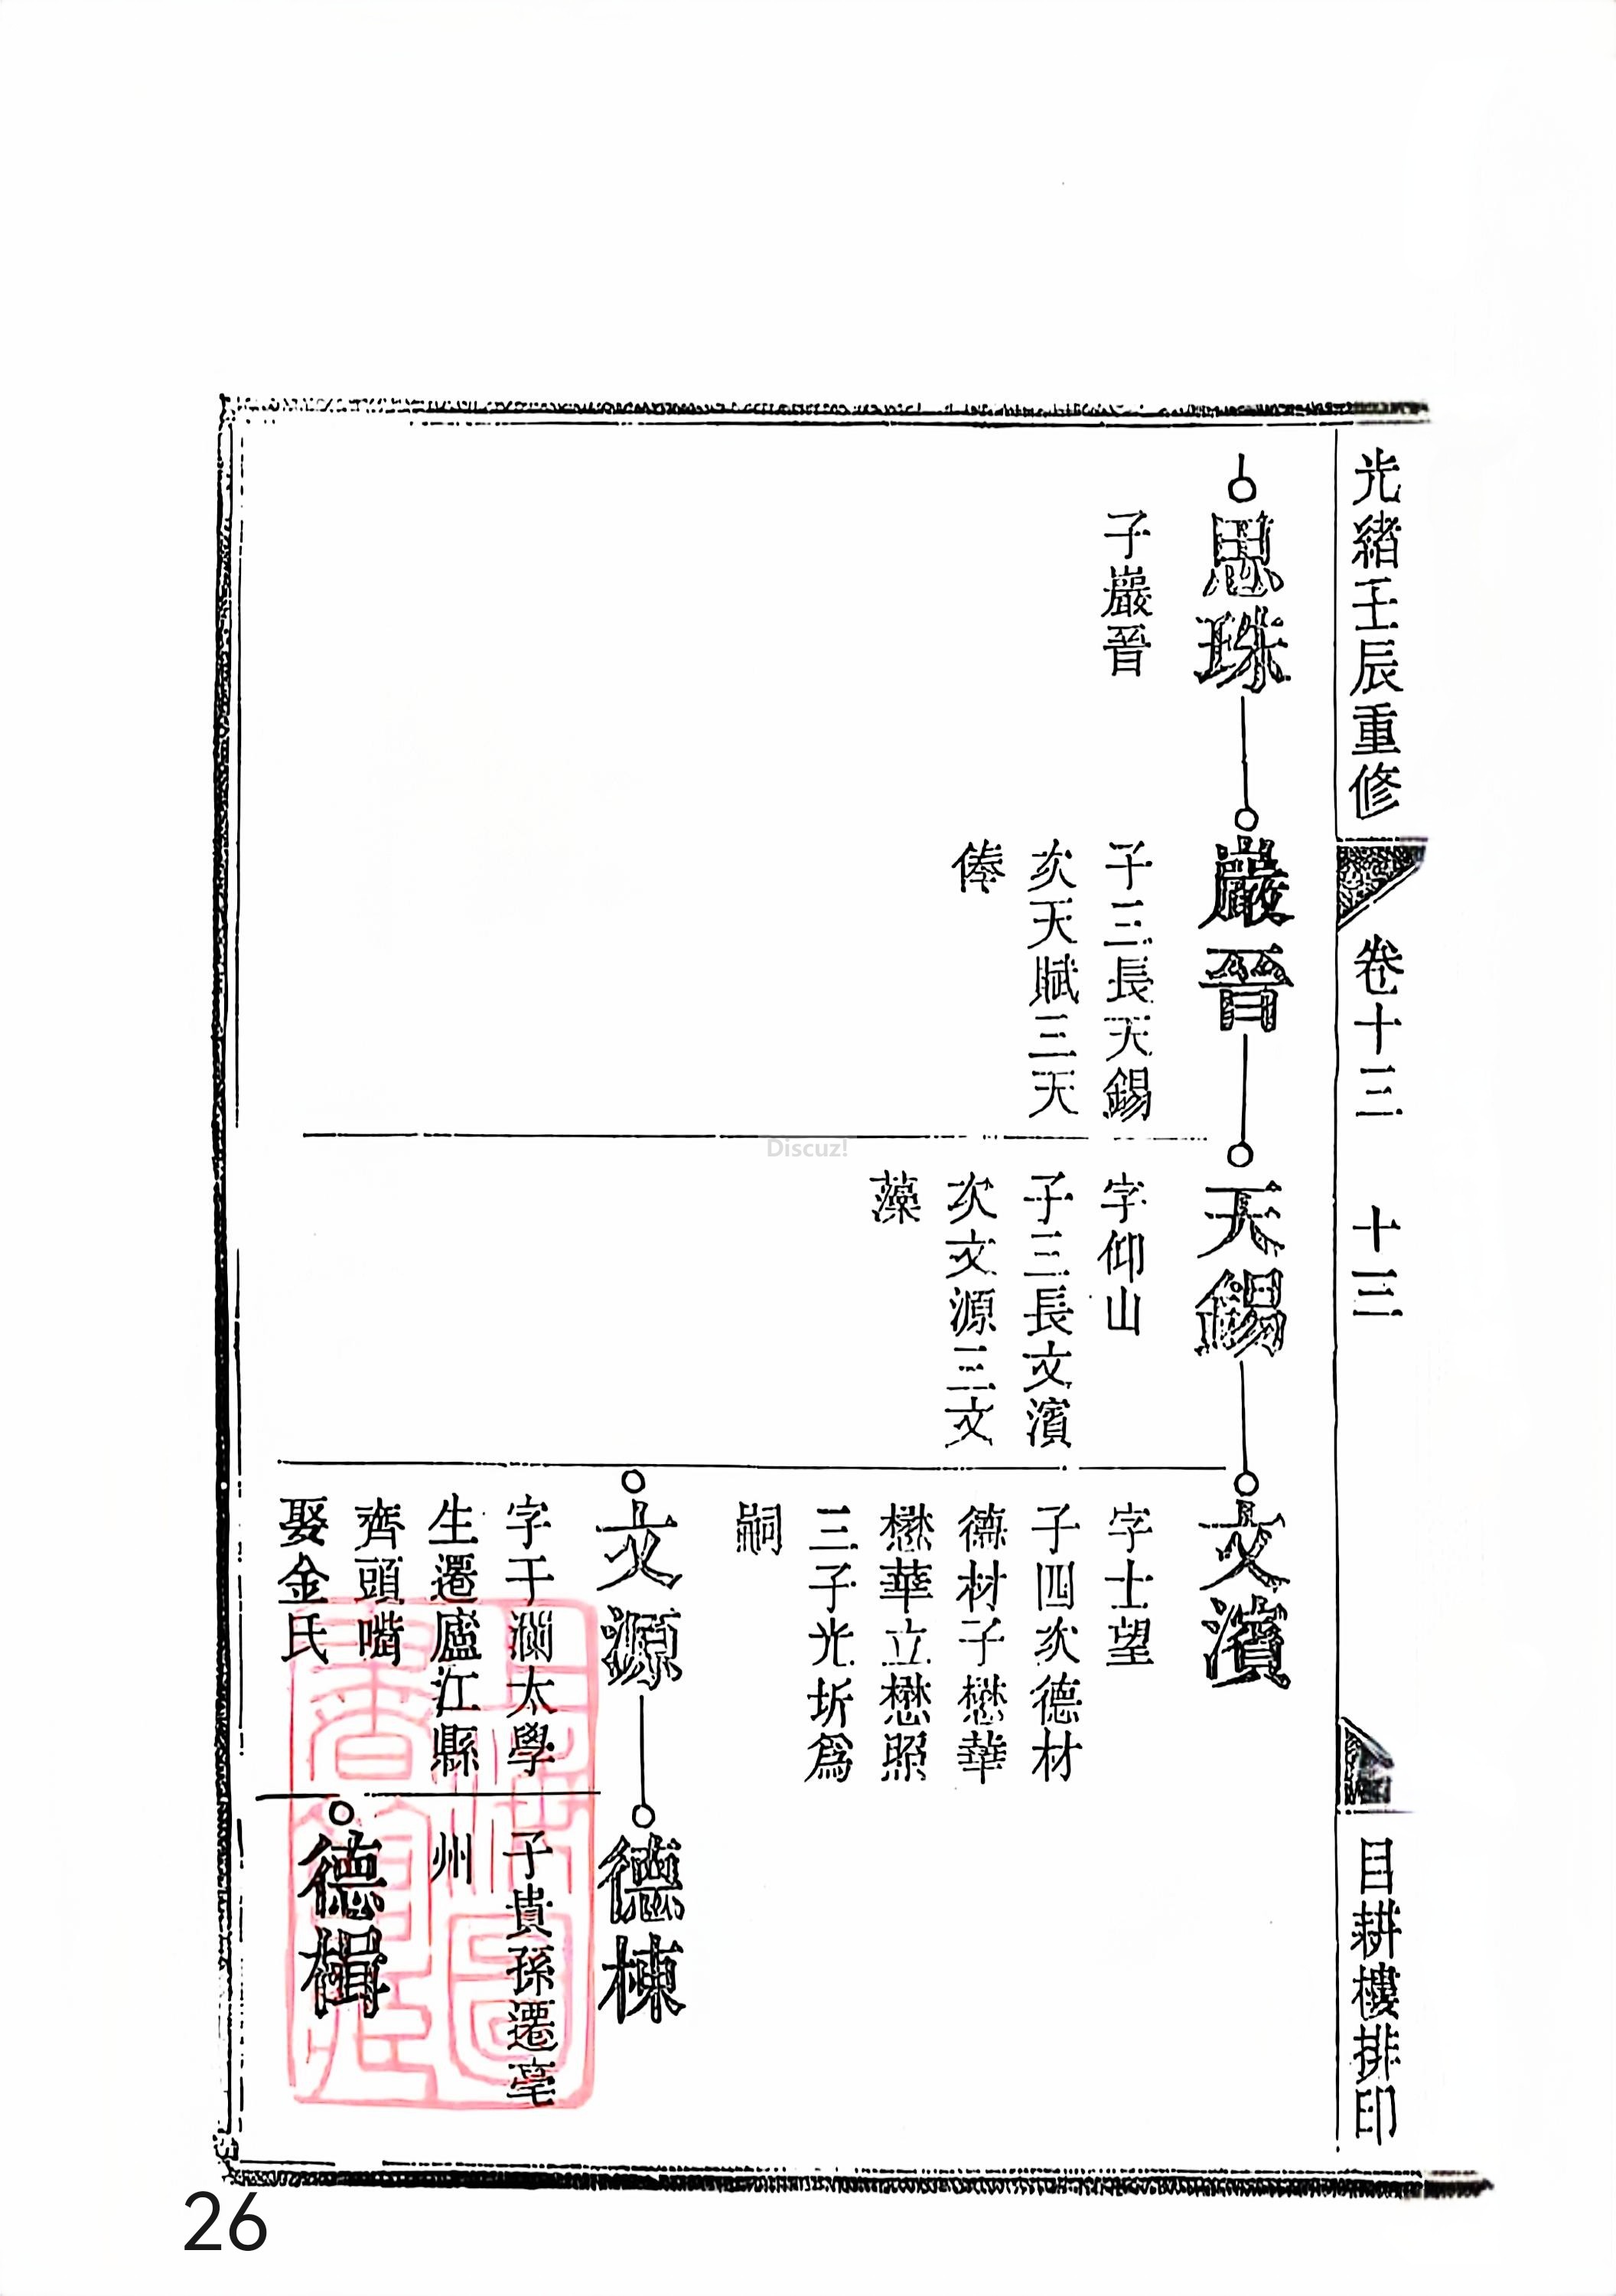 光緒壬辰重修
卷十三
十三
目耕樓排印
思珠
子巖晉
巖晉
子三長天錫
次天賦三天
俸
天錫
字仰山
子三長文濱
次文源三文
藻
文濱
字士望
子四次德材
德材子懋華
懋華立懋照
三子光圻爲
嗣
文源
字于瀾太學
生遷廬江縣
齊頭嘴
娶金氏
德棟
子貴孫遷亳
州
德楫
Discuz!
26